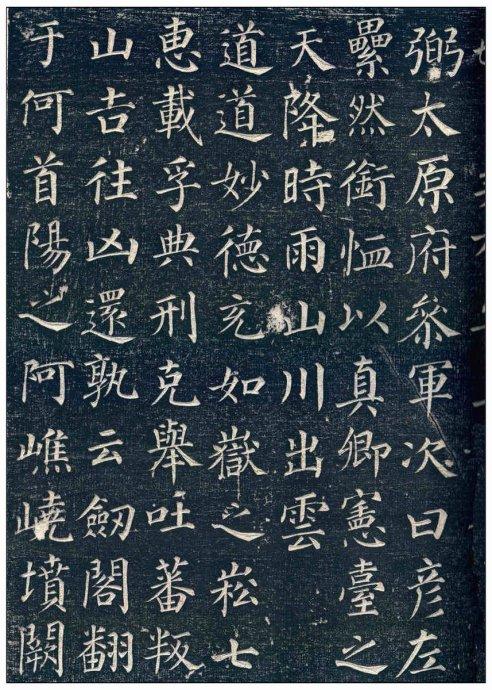 弼太原府叅軍次曰彦左
纍然銜恤以真卿憲臺之
天降時雨山川出雲
道道妙德充如嶽之崧七
恵載孚典刑克舉吐蕃叛
山吉往凶還孰云劒閣翻
于何首陽之阿嶕嶢墳闕